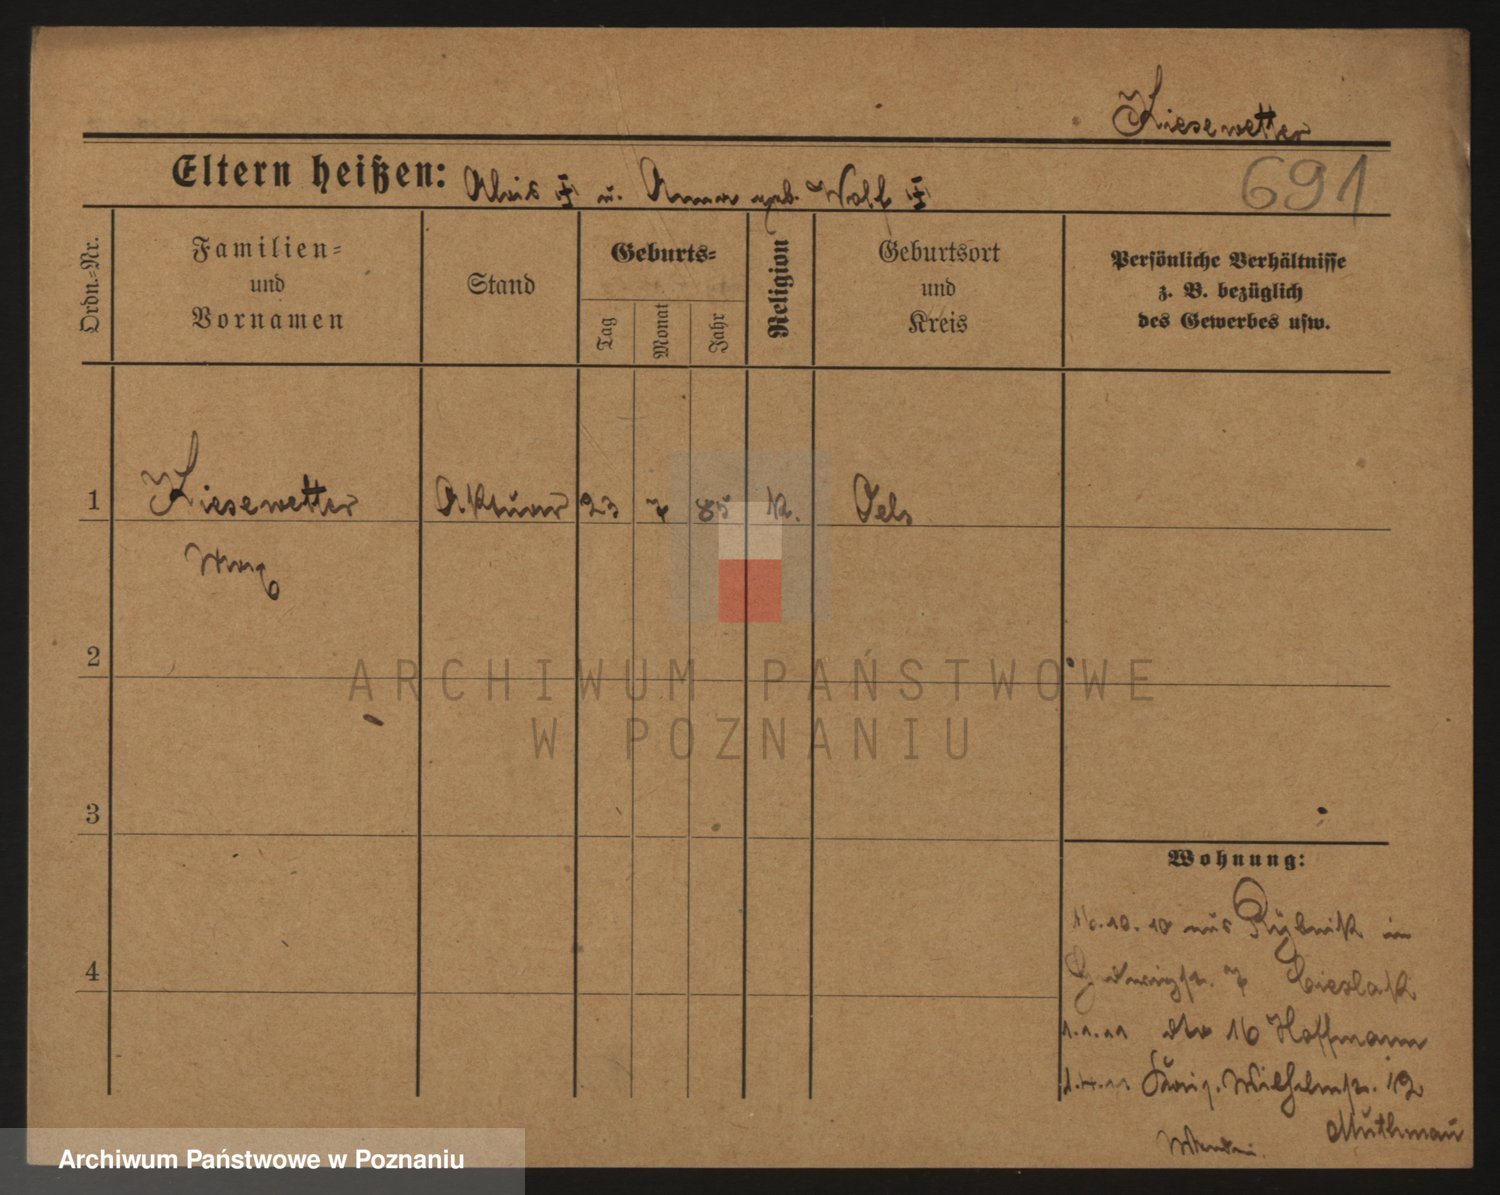 Kiesewetter
691
Eltern heißen: Alois u. Anna geb. Wolf
Ordn.=Nr.
Familien=
und
Vornamen
Stand
Geburts=
Tag
Monat
Jahr
Religion
Geburtsort
und
Kreis
Persönliche Verhältnisse
z. B. bezüglich
des Gewerbes usw.
1 Kiesewetter Aktuar 23 7 85 K. Oels
Max
2
ARCHIWUM PAŃSTWOWE
W POZNANIU
3
Wohnung:
10. 10 aus Rybnik in
4
7 Cieslak
1.1.11 dto 16 Hoffmann
König. Wilhelmstr. 12
Muthmau
Archiwum Państwowe w Poznaniu